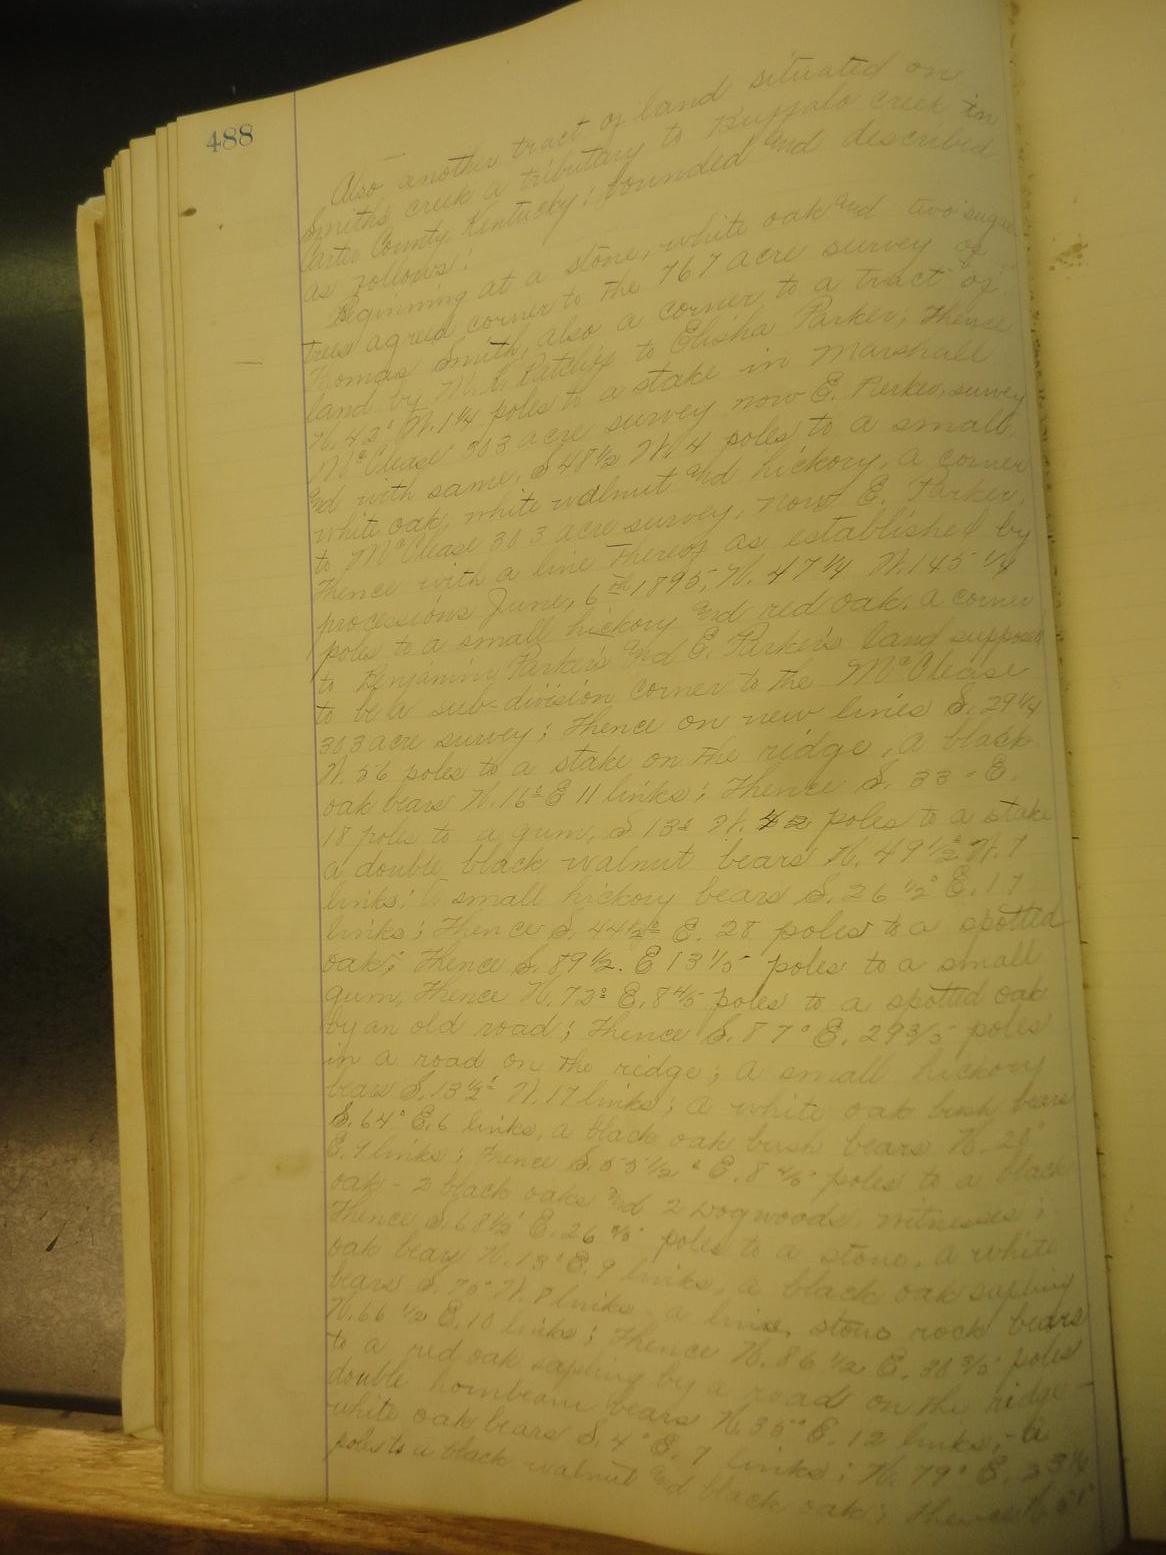 488
Also another tract of land situated on
Smiths creek a tributary to Buffalo creek in
Carter County, Kentucky; bounded and described
as follows:
Beginning at a stone, white oak and two sugar
trees agreed corner to the 767 acre survey of
Thomas Smith, also a corner to a tract of
land by M. L. Ratcliffs to Elisha Parker; Thence
N. 42° W. 1¼ poles to a stake in Marshall
McClease 303 acre survey now E. Parker, survey
and with same, S 48½ W. 4 poles to a small
white oak, white walnut and hickory, a corner
to McClease 303 acre survey, now E. Parker,
Thence with a line thereof as established by
processions June, 6th 1895, N. 47¼ W. 145 ¼
poles to a small hickory and red oak, a corner
to Benjamin Parker's and E. Parker's land suppose
to be a sub-division corner to the McClease
303 acre survey; Thence on new lines S. 29¼
W. 56 poles to a stake on the ridge, a black
oak bears N. 16° E 11 links; Thence S. 33° E.
18 poles to a gum, S 13° W. 42 poles to a stake
a double black walnut bears N. 49½° W. 7
links; a small hickory bears S. 26½° E. 17
links; Thence S. 44½° E. 28 poles to a spotted
oak; Thence S. 89½. E 13 1/5 poles to a small
gum, Thence N. 73° E. 8 4/5 poles to a spotted oak
by an old road; Thence S. 87° E. 29 3/5 poles
in a road on the ridge; a small hickory
bears S. 13½° W. 17 links; a white oak bush bears
S. 64° E. 6 links, a black oak bush bears N. 20°
E. 9 links; Thence S. 55½° E. 8 4/5 poles to a black
oak - 2 black oaks and 2 dogwoods, witnesses;
Thence S. 68½° E. 26 poles to a stone, a white
oak bears N. 13° E. 9 links, a black oak sapling
bears S. 75° W. 8 links - a lime, stone rock bears
N. 66 ½ E. 10 links; Thence N. 86 ½ E. 30 3/5 poles
to a red oak sapling by a road on the ridge -
double hornbeam bears N. 35° E. 12 links, - a
white oak bears S. 4° E. 7 links; N. 79° E. 23¼
poles to a black walnut and black oak; Thence N 51°